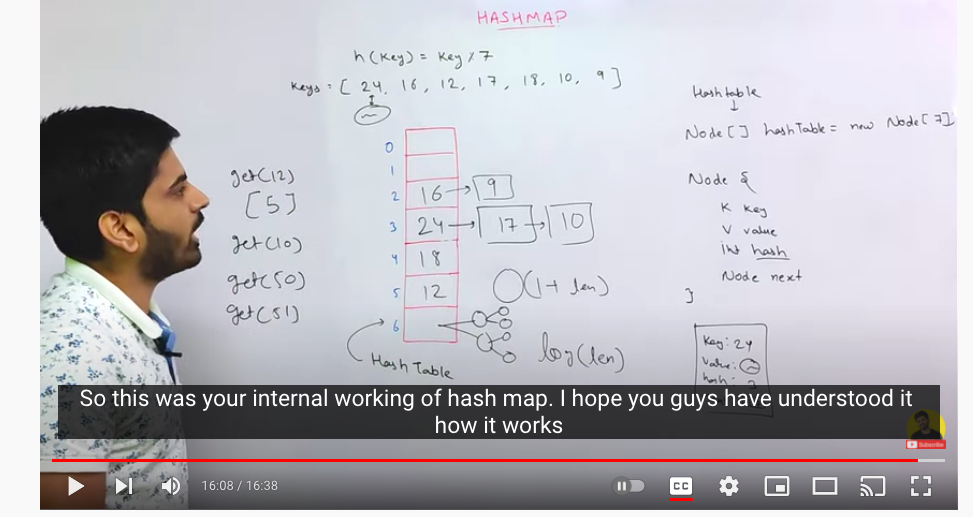 HASHMAP
h(key) = key % 7
keys = [ 24, 16, 12, 17, 18, 10, 9 ]
get(12)
[5]
get(10)
get(50)
get(51)
0
1
2 16 → 9
3 24 → 17 → 10
4 18
5 12
6
O(1 + len)
log(len)
Hash Table
Hashtable
↓
Node[] hashTable = new Node[7]
Node {
K key
V value
int hash
Node next
}
Key: 24
Value:
hash: 3
So this was your internal working of hash map. I hope you guys have understood it
how it works
Subscribe
16:08 / 16:38
CC